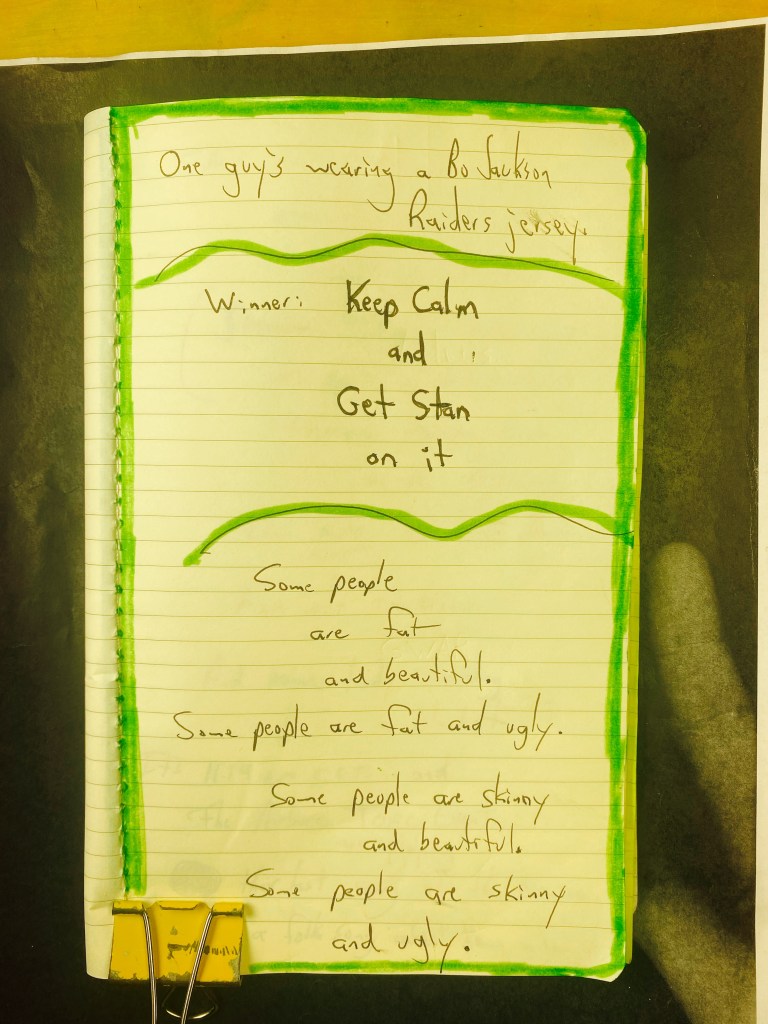 One guy's wearing a Bo Jackson
Raiders jersey.
Winner: Keep Calm
and
Get Stan
on it
Some people
are fat
and beautiful.
Some people are fat and ugly.
Some people are skinny
and beautiful.
Some people are skinny
and ugly.